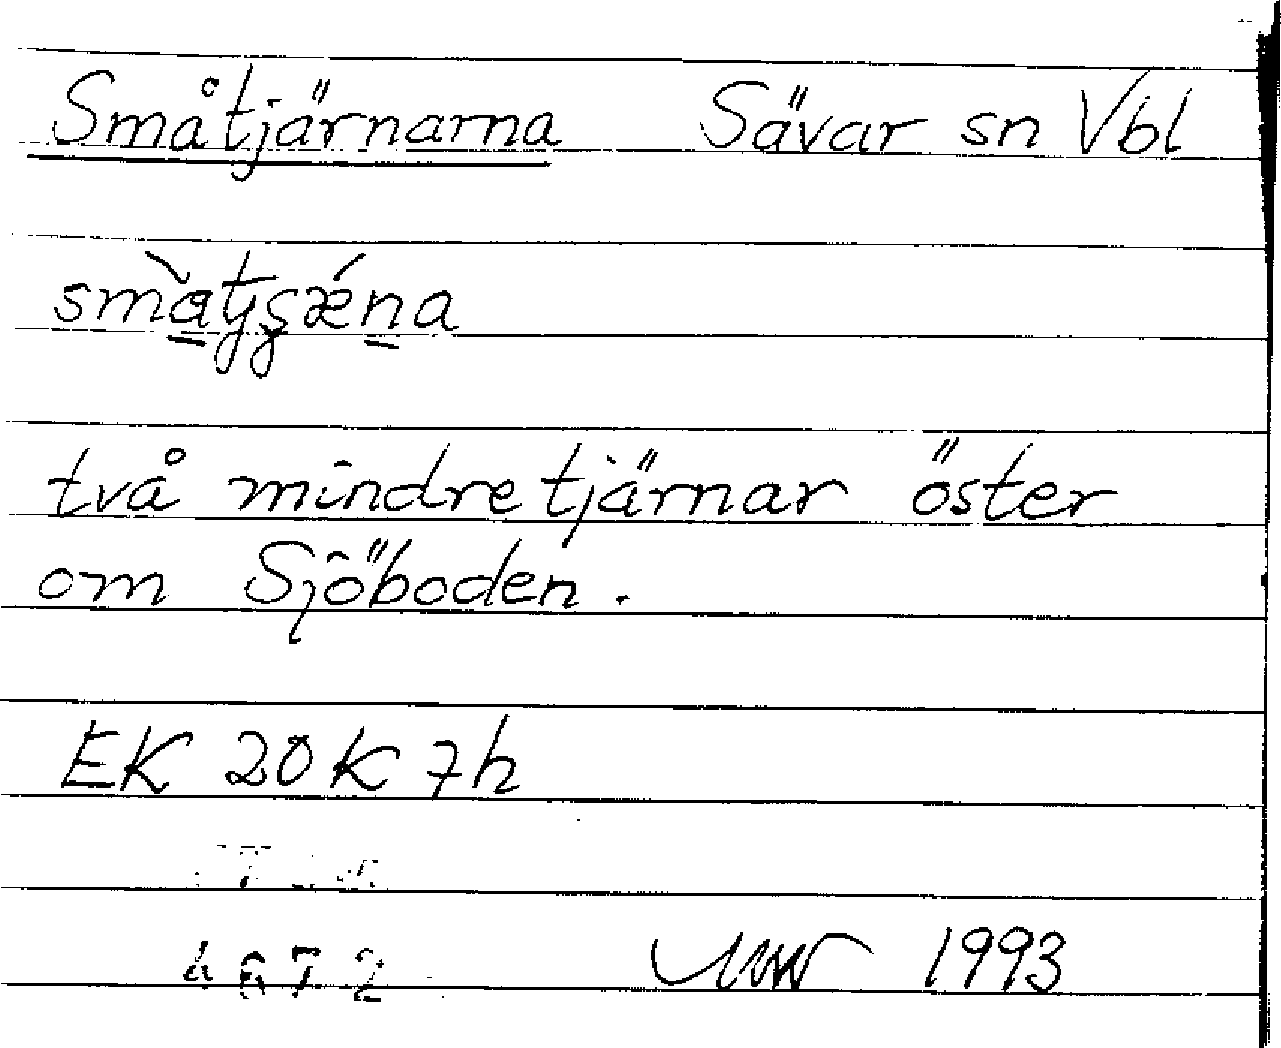 Småtjärnarna Sävar sn Vbl
två mindre tjärnar öster
om Sjöboden.
EK 20K 7h
4672
1993